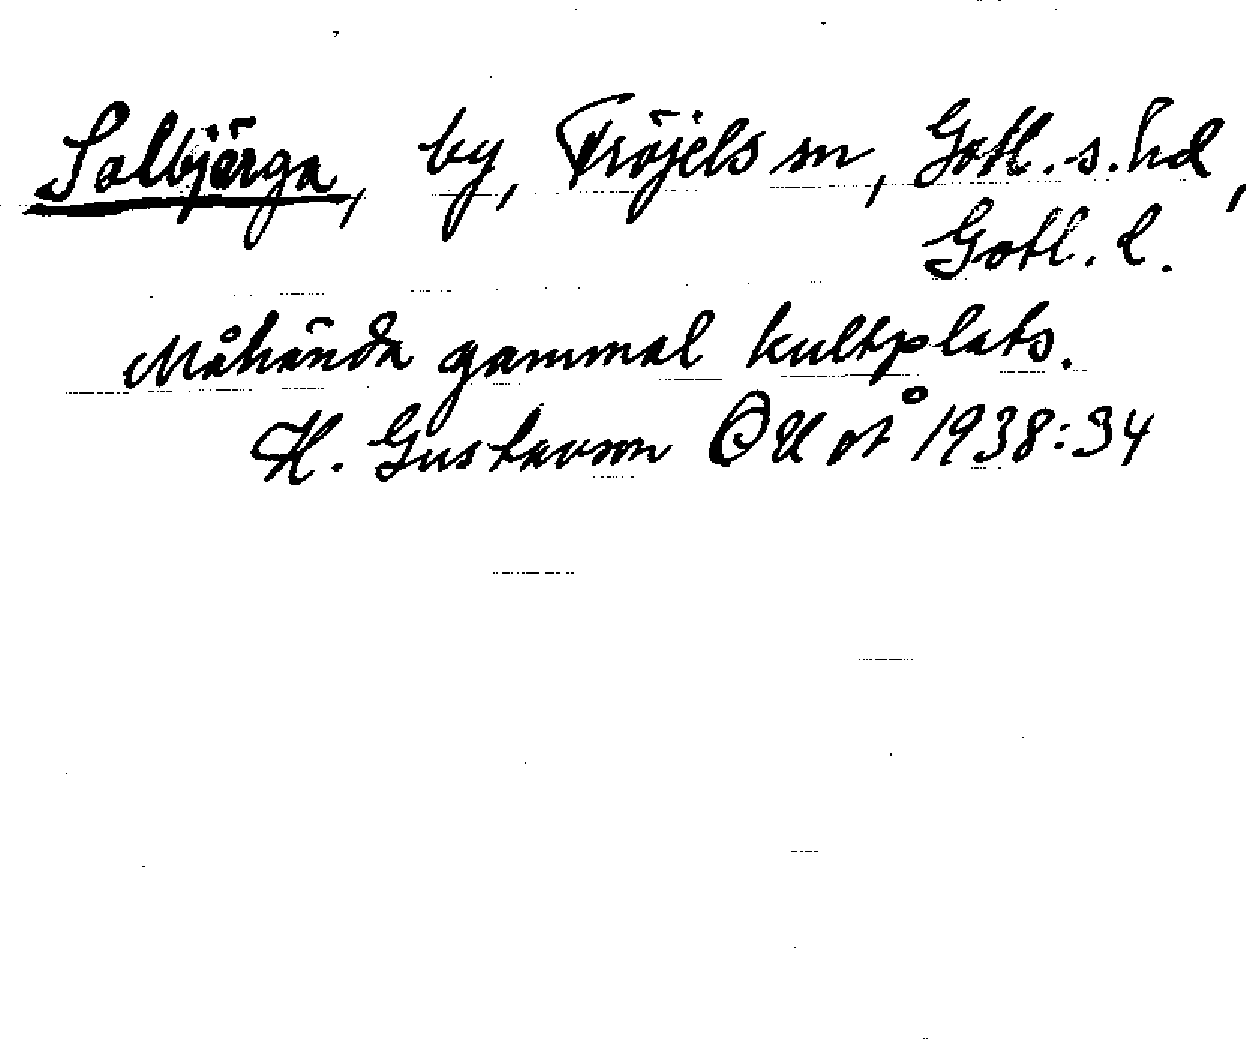 Solbjärga, by, Fröjels sn, Gotl. s. hd,
Gotl. l.
Måhända gammal kultplats.
H. Gustavson OUÅ 1938:34